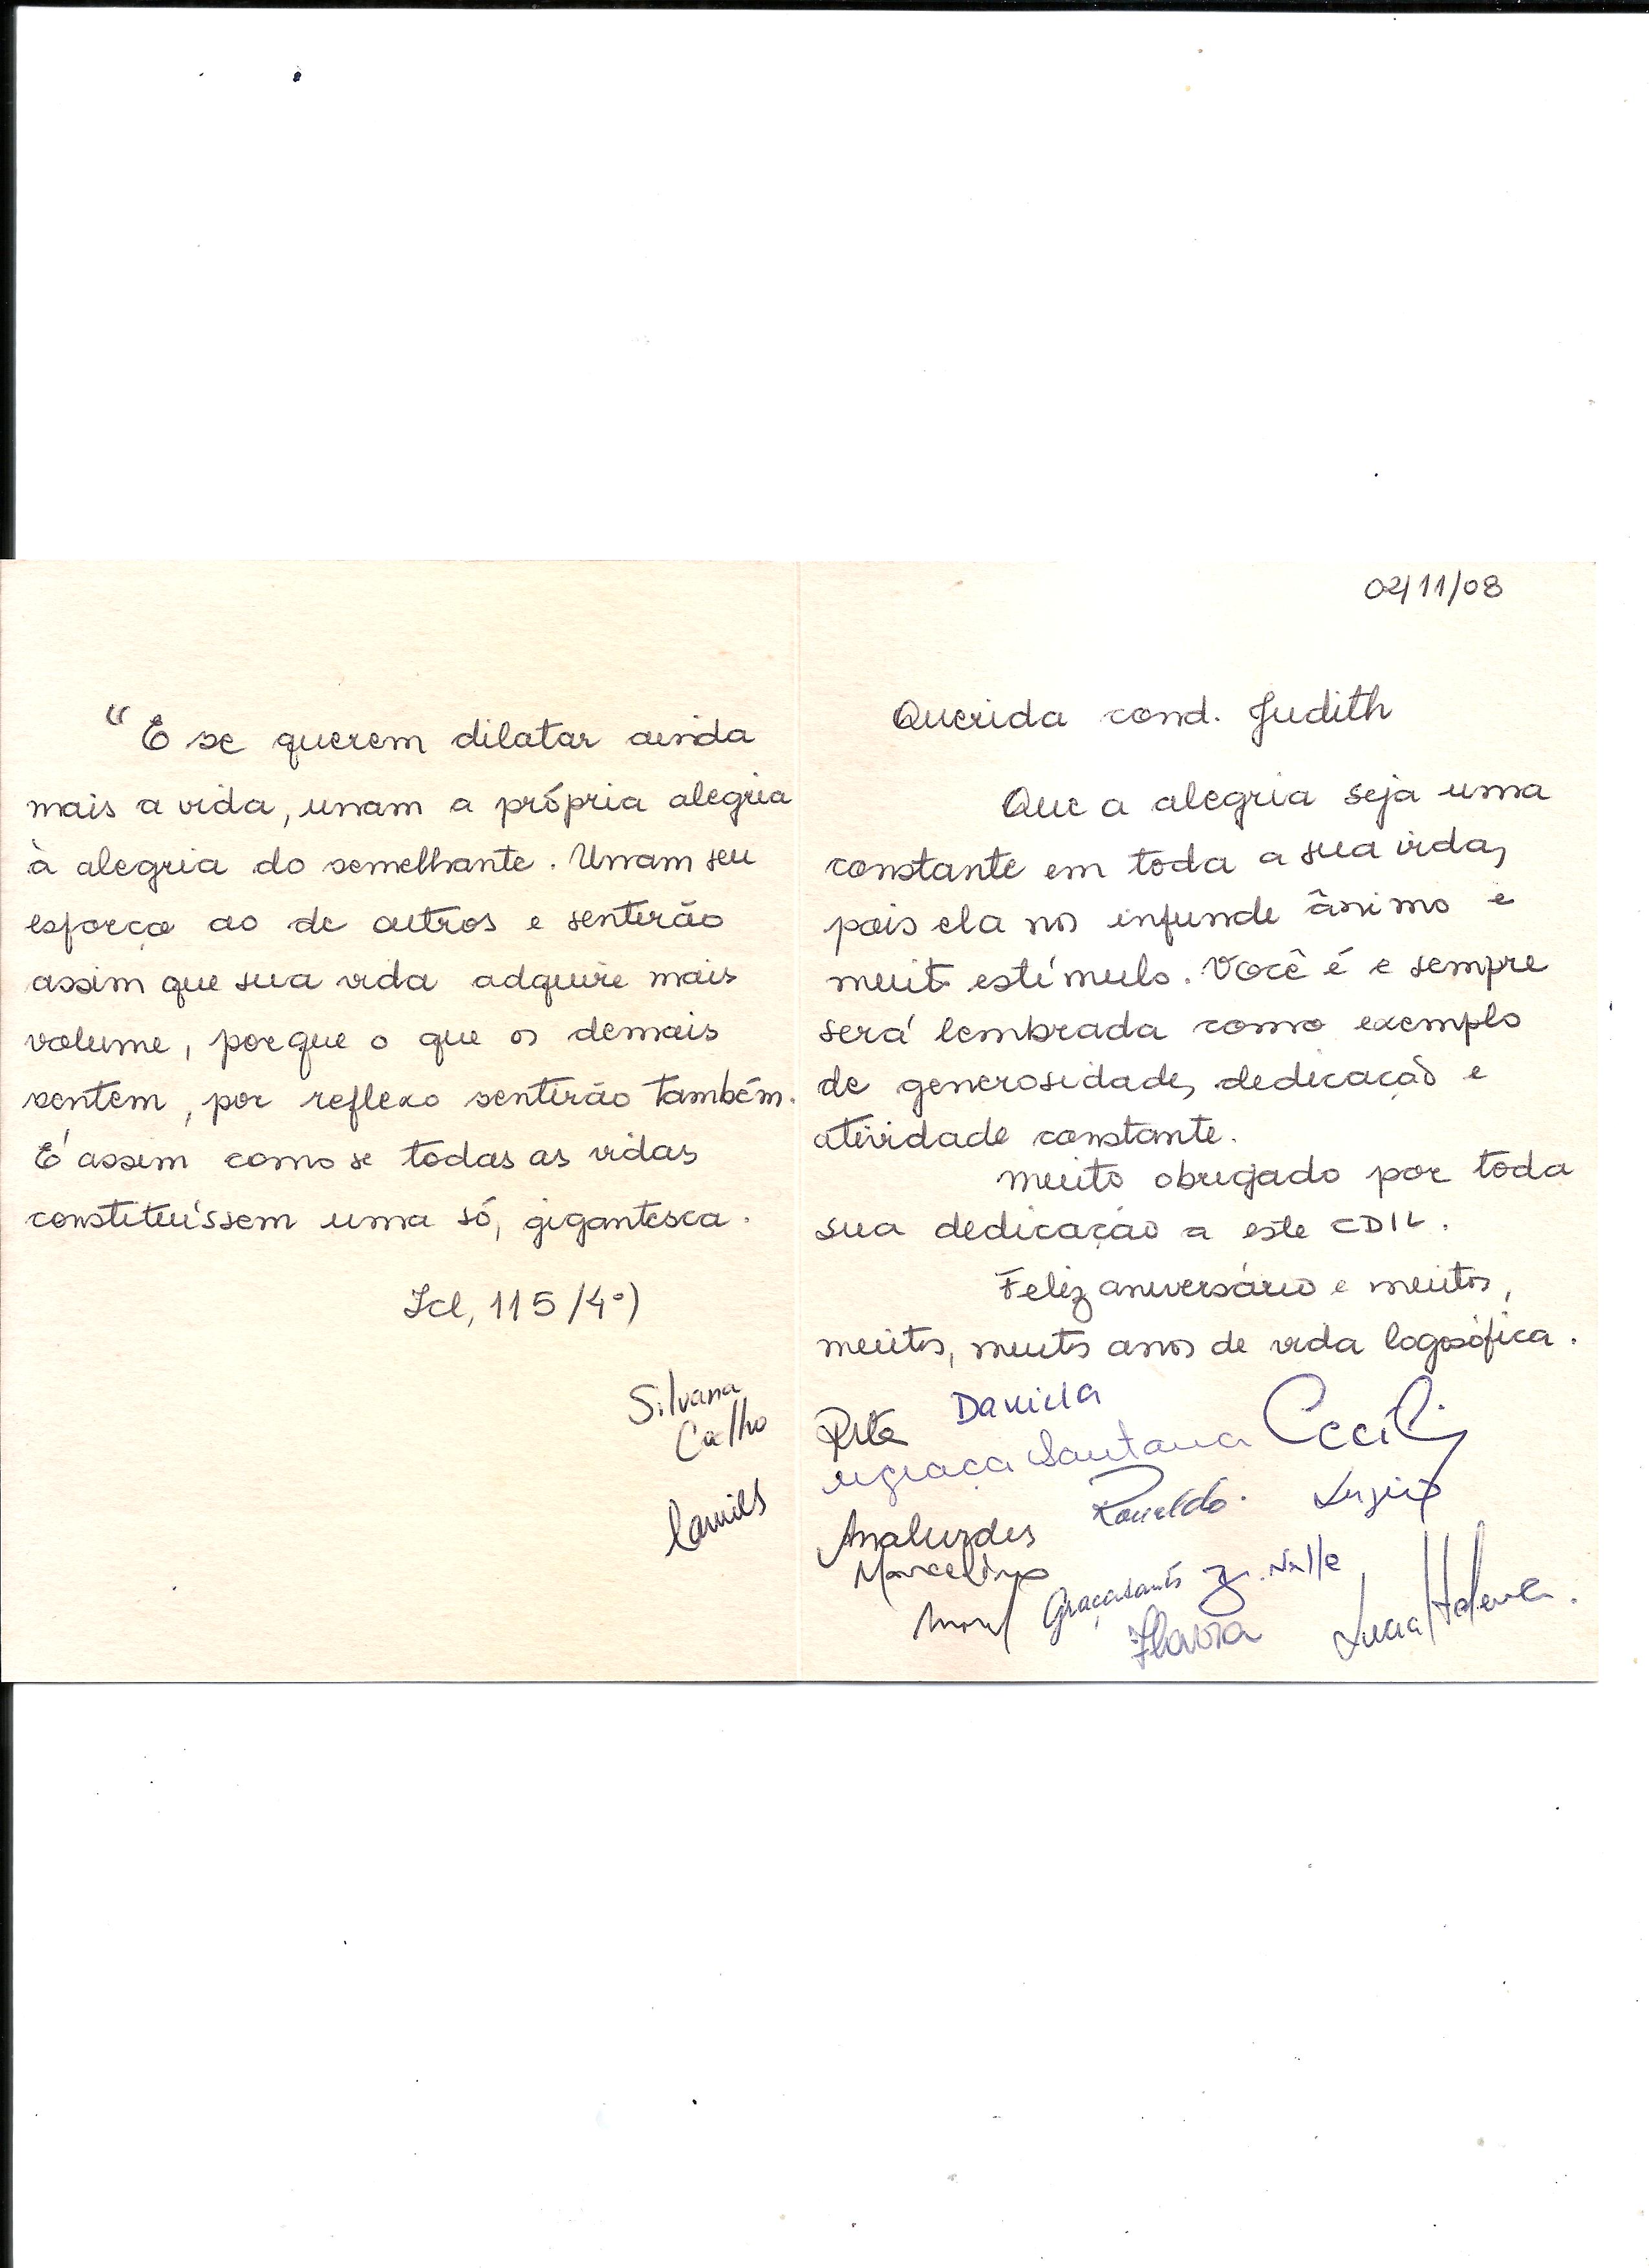 “E se querem dilatar ainda
mais a vida, unam a própria alegria
à alegria do semelhante. Unam seu
esforço ao de outros e sentirão
assim que sua vida adquire mais
volume, porque o que os demais
sentem, por reflexo sentirão também.
É assim como se todas as vidas
constituíssem uma só, gigantesca.
Icl, 115/4º)
Silvana
Coelho
02/11/08
Querida cond. Judith
Que a alegria seja uma
constante em toda a sua vida,
pois ela nos infunde ânimo e
muito estímulo. Você é e sempre
será lembrada como exemplo
de generosidade, dedicação e
atividade constante.
Muito obrigado por toda
sua dedicação a este CDIL.
Feliz aniversário e muitos,
muitos, muitos anos de vida logosófica.
Rita Daniela
Graça Santana
Ronaldo.
Analurdes
Marcelino
Flavia
Lucia Helena.